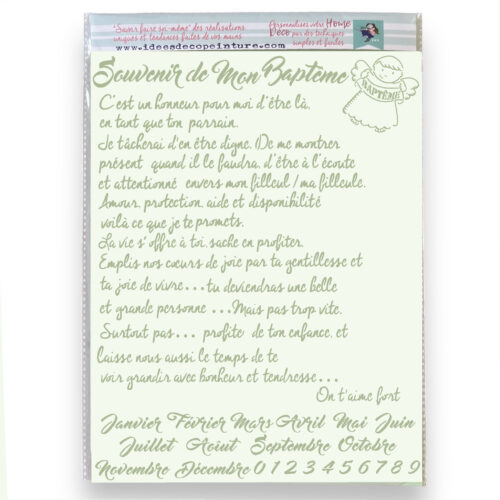 "Savoir faire soi-même" des réalisations
uniques et tendances faites de vos mains
www.ideesdecopeinture.com
Personnalisez votre Home
Déco par des techniques
simples et faciles
Souvenir de Mon Baptême
BAPTÊME
C'est un honneur pour moi d'être là,
en tant que ton parrain.
Je tâcherai d'en être digne, (De me montrer
présent quand il le faudra, d'être à l'écoute
et attentionné envers mon filleul / ma filleule.
Amour, protection, aide et disponibilité
voilà ce que je te promets.
La vie s'offre à toi, sache en profiter.
Emplis nos cœurs de joie par ta gentillesse et
ta joie de vivre...tu deviendras une belle
et grande personne ...Mais pas trop vite.
Surtout pas... profite de ton enfance, et
laisse nous aussi le temps de te
voir grandir avec bonheur et tendresse...
On t'aime fort
Janvier Février Mars Avril Mai Juin
Juillet Août Septembre Octobre
Novembre Décembre 0 1 2 3 4 5 6 7 8 9